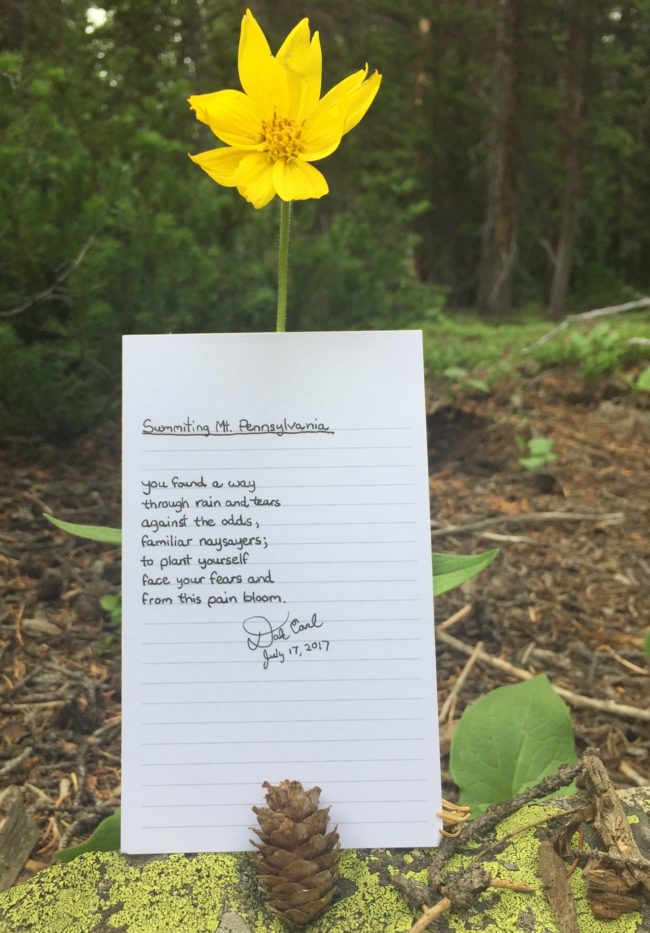 Summiting Mt. Pennsylvania
you found a way
through rain and tears
against the odds,
familiar naysayers;
to plant yourself
face your fears and
from this pain bloom.
July 17, 2017